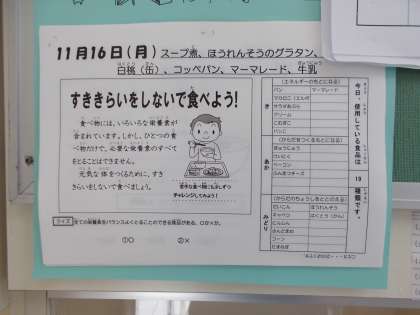 11月16日(月) スープ煮、ほうれんそうのグラタン、
白桃(缶)、コッペパン、マーマレード、牛乳
すききらいをしないで食べよう!
食べ物には、いろいろな栄養素が
含まれています。しかし、ひとつの食
べ物だけで、必要な栄養素のすべて
をとることはできません。
元気な体をつくるために、すき
きらいをしないで食べましょう。
苦手な食べ物にも少しずつ
チャレンジしてみよう!
クイズ 全ての栄養素をバランスよくとることのできる食品がある。○か×か。
①○ ②×
今日、使用している食品は 19 種類です。
き
(エネルギーのもとになる)
パン マーマレード
マカロニ(エルボ
サラダあぶら
クリーム
こむぎこ
パンこ
あか
(からだをつくるもとになる)
ぎゅうにゅう
けいにく
ベーコン
ふんまつチーズ
みどり
(からだのちょうしをととのえる)
だいこん ほうれんそう
キャベツ はくとう(かん)
にんじん
コーン
たまねぎ